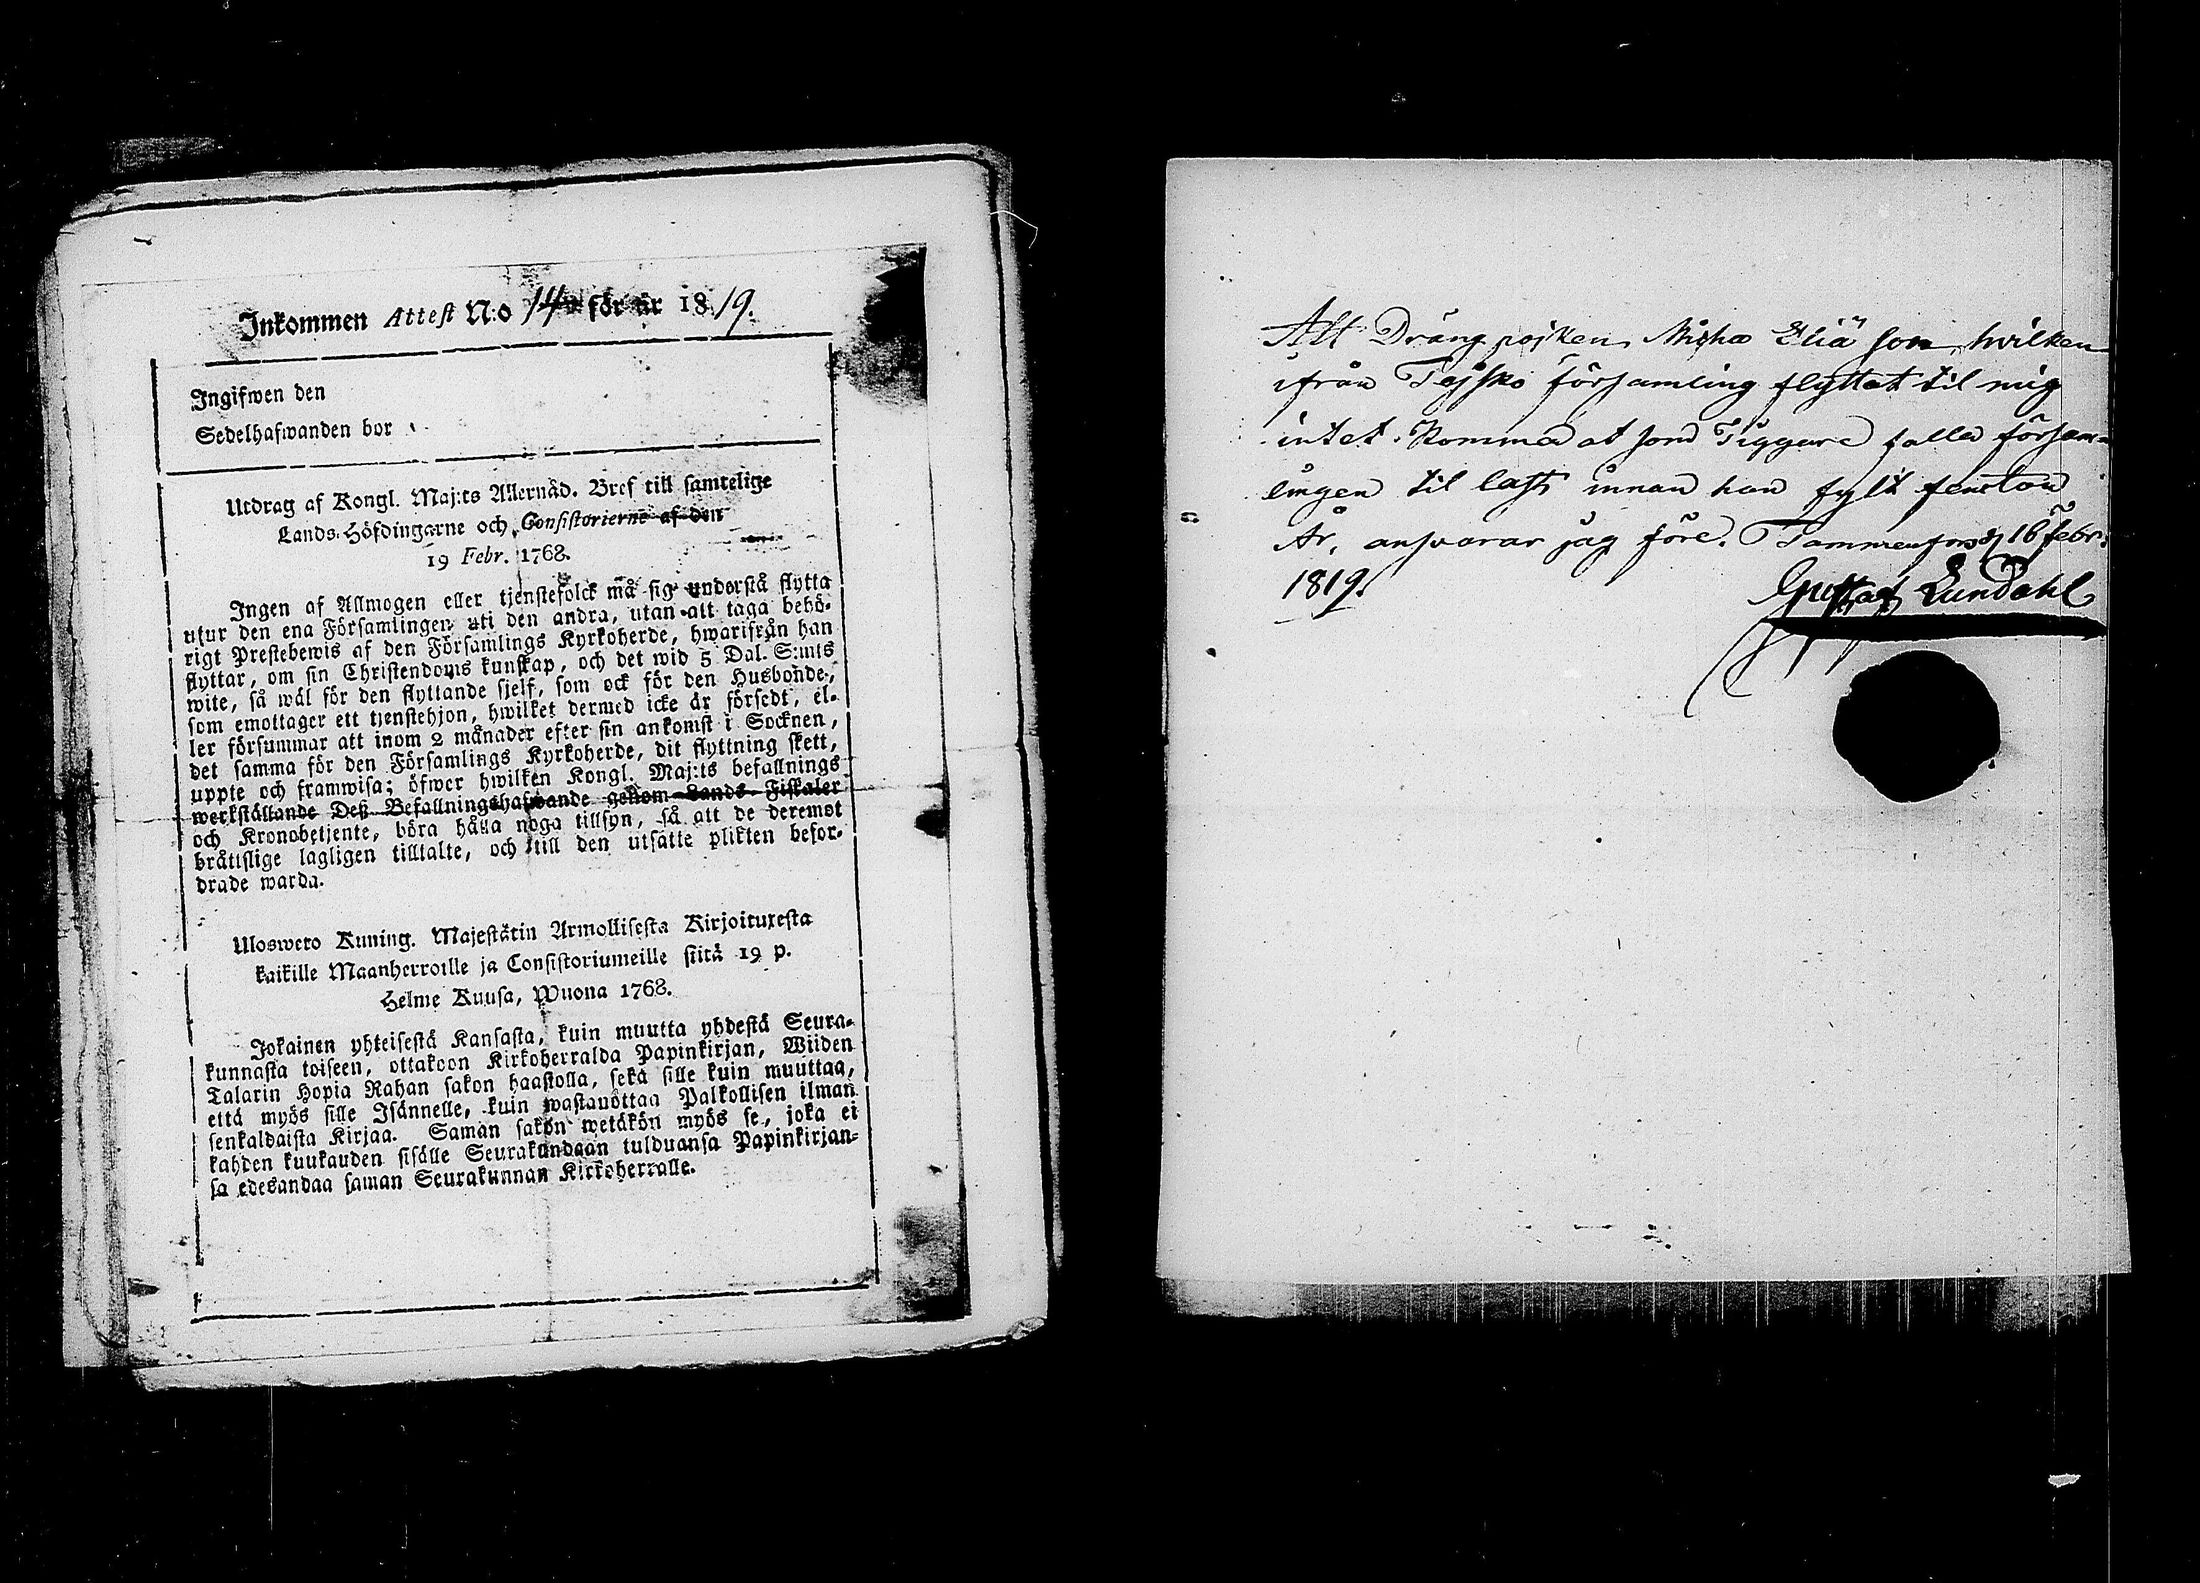 Inkommen Attest N:o 14 för år 1819.
Ingifwen den
Sedelhafwanden bor
Utdrag af Kongl. Maj:ts Allernåd. Bref till samtelige
Lands-Höfdingarne och Consistorierne af den
19 Febr. 1768.
Ingen af Allmogen eller tjenstefolck må sig understå flytta
utur den ena Församlingen uti den andra, utan att taga behö-
rigt Prestebewis af den Församlings Kyrkoherde, hwarifrån han
flyttar, om sin Christendoms kunskap, och det wid 5 Dal. S:mts
wite, så wäl för den flyttande sjelf, som ock för den Husbonde,
som emottager ett tjenstehjon, hwilket dermed icke är försedt, el-
ler försummar att inom 2 månader efter sin ankomst i Socknen,
det samma för den Församlings Kyrkoherde, dit flyttning skett,
uppte och framwisa; öfwer hwilken Kongl. Maj:ts befallnings
werkställande Deß Befallningshafwande genom Lands-Fiskaler
och Kronobetjente, böra hålla noga tillsyn, så att de deremot
bråttslige lagligen tilltalte, och till den utsatte plikten befor-
drade warda.
Uloswero Kuning. Majestätin Armollisesta Kirjoituxesta
kaikille Maanherroille ja Consistoriumeille siitä 19 p.
Helme Kuusa, Wuona 1768.
Jokainen yhteisestä Kansasta, kuin muutta yhdestä Seura-
kunnasta toiseen, ottakoon Kirkoherralda Papinkirjan, Wiiden
Talarin Hopia Rahan sakon haastolla, sekä sille kuin muuttaa,
että myös sille Isännelle, kuin wastanottaa Palkollisen ilman
senkaldaista Kirjaa. Saman sakon wetäkön myös se, joka ei
kahden kuukauden sisälle Seurakundaan tulduansa Papinkirjan-
sa edesandaa saman Seurakunnan Kirkoherralle.
Att Drängpojken Micha Eliä son, hvilken
ifrån Tejsko församling flyttat til mig
intet komma at som Tiggare falla försam-
lingen til last innan han fylt femton
År, ansvarar jag före. Tammerfors d 16 Febr:
1819.
Gustaf Lundahl